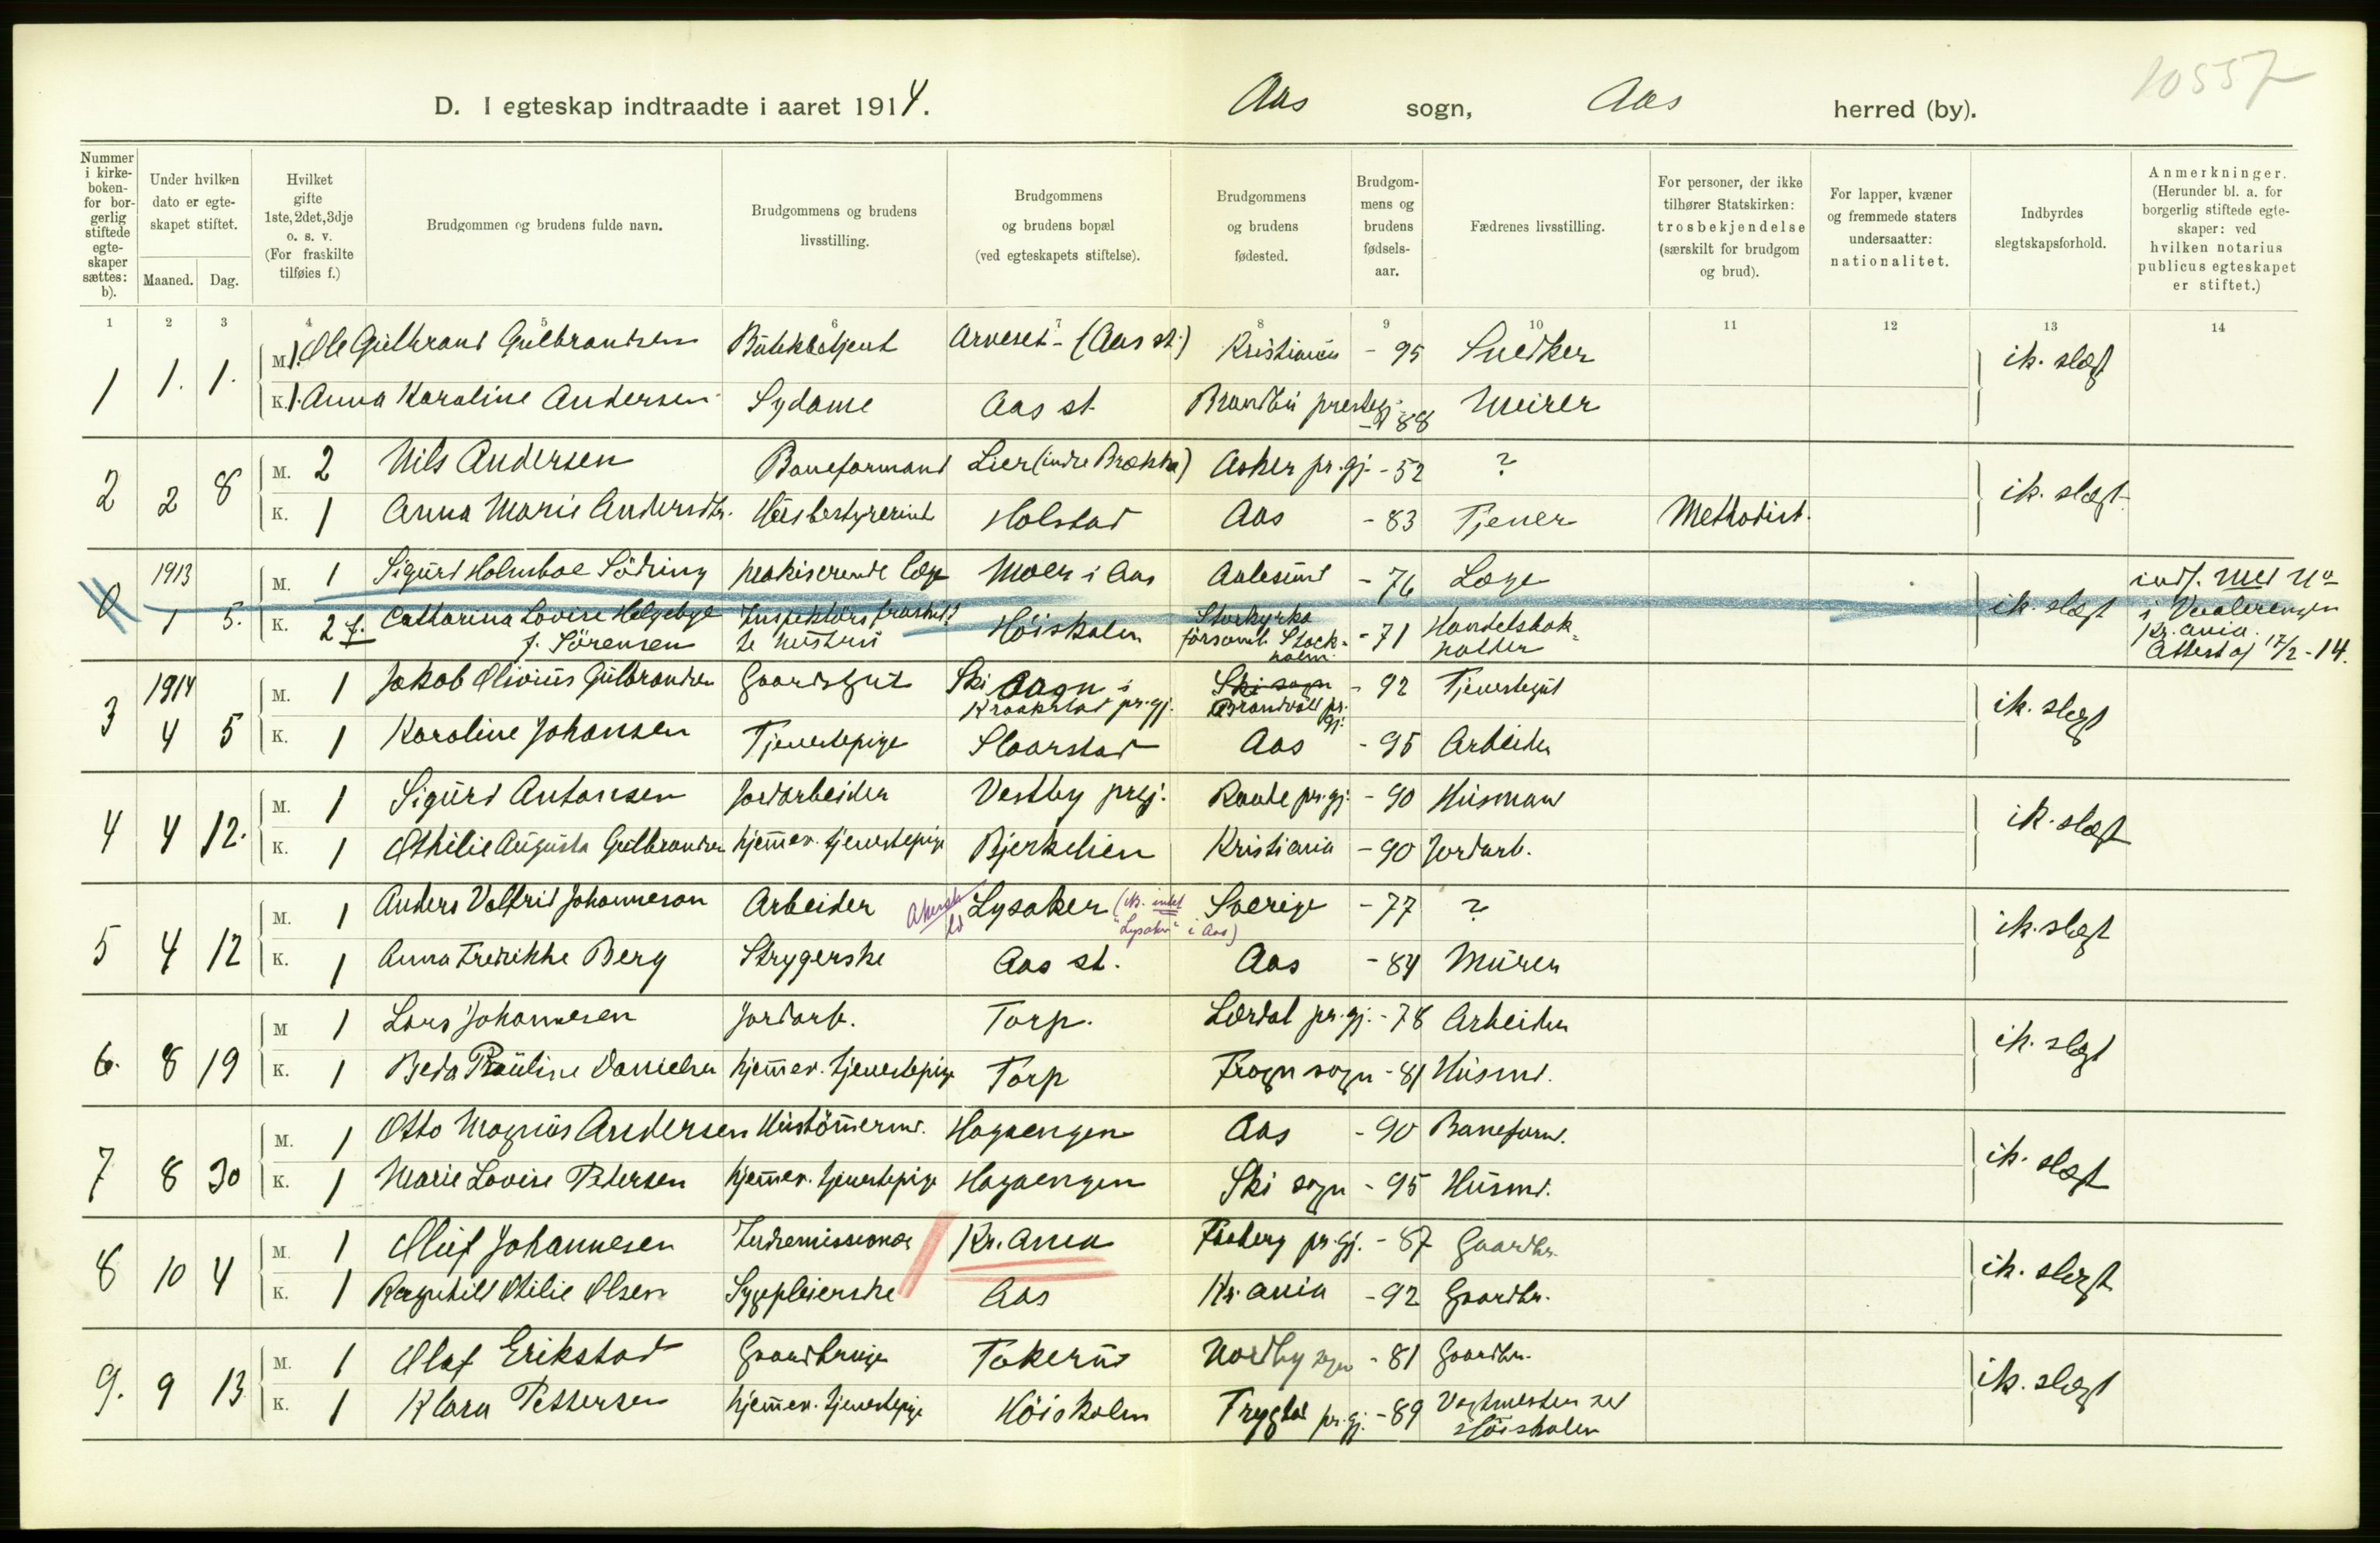 10557
D. I egteskap indtraadte i aaret 1914. Aas sogn, Aas herred (by).
Nummer i kirkeboken- for borgerlig stiftede egteskaper sættes: b).
Under hvilken dato er egteskapet stiftet.
Maaned. Dag.
Hvilket gifte 1ste, 2det, 3dje o. s. v. (For fraskilte tilføies f.)
Brudgommen og brudens fulde navn.
Brudgommens og brudens livsstilling.
Brudgommens og brudens bopæl (ved egteskapets stiftelse).
Brudgommens og brudens fødested.
Brudgommens og brudens fødsels- aar.
Fædrenes livsstilling.
For personer, der ikke tilhører Statskirken: trosbekjendelse (særskilt for brudgom og brud).
For lapper, kvæner og fremmede staters undersaatter: nationalitet.
Indbyrdes slegtskapsforhold.
Anmerkninger. (Herunder bl. a. for borgerlig stiftede egteskaper: ved hvilken notarius publicus egteskapet er stiftet.)
1 2 3 4 5 6 7 8 9 10 11 12 13 14
1 1. 1. M. 1. Ole Gulbrand Gulbrandsen Butikbetjent Arneset - (Aas st.) Kristiania - 95 Snedker ik. slægt
K. 1. Anna Karoline Andersen Sydame Aas st. Brandbu prestegj. - 88 Murer
2 2 8 M. 2 Nils Andersen Baneformand Lier (indre Brækka) Asker pr.gj. - 52 ? ik. slægt
K. 1 Anna Marie Andersdtr. Husbestyrerinde Holstad Aas - 83 Tjener Methodist.
0 1913 1 5. M. 1 Sigurd Holmboe Södring praktiserende læge Moer i Aas Aalesund - 76 Læge ik. slægt indf. med No i Vaalerengen Kr.ania. Attest af 17/2 - 14.
K. 2 f. Catharina Lovise Helgebye f. Sörensen Inspektörs fraskilte hustru Höiskolen Storkyrko församl. Stockholm - 71 Handelsbokholder
3 1914 4 5 M. 1 Jakob Olivius Gulbrandsen Gaardsgut Ski sogn i Kraakstad pr.gj. Ski sogn Brandvold pr.gj. - 92 Tjenestegut ik. slegt
K. 1 Karoline Johansen Tjenestepige Slaarstad Aas - 95 Arbeider
4 4 12. M. 1 Sigurd Antonsen Jordarbeider Vestby prgj. Raade pr.gj. - 90 Husmand ik. slægt
K. 1 Othilie Augusta Gulbrandsen hjemmev. tjenestepige Bjerkelien Kristiania - 90 Jordarb.
5 4 12 M. 1 Anders Valfrid Johanneson Arbeider Akershus Lysaker (Nb. intet "Lysaker" i Aas) Sverige - 77 ? ik. slægt
K. 1 Anna Fredrikke Berg Strygerske Aas st. Aas - 84 Murer
6. 8 19 M 1 Lars Johannesen Jordarb. Torp. Lærdal pr.gj. - 78 Arbeider ik. slegt
K. 1 Beda Pauline Danielsen hjemmev. tjenestepige Torp Frogn sogn - 81 Husmd.
7 8 30 M. 1 Otto Magnus Andersen Hustömmermd. Hagaengen Aas - 90 Baneformd. ik. slægt
K. 1 Marie Lovise Petersen hjemmev. tjenestepige Hagaengen Ski sogn - 95 Husmd.
8 10 4 M. 1 Oluf Johannesen Indremissionær Kr.ania Faaberg pr.gj. - 87 Gaardbr. ik. slegt
K. 1 Ragnhild Otilie Olsen Sygepleierske Aas Kr.ania - 92 Gaardbr.
9. 9 13 M. 1 Olaf Erikstad Gaardbruger Takerud Nordby sogn - 81 Gaardbr. ik. slegt
K. 1 Klara Pettersen hjemmev. tjenestepige Höiskolen Trygstad pr.gj. - 89 Vagtmester ved Höiskolen